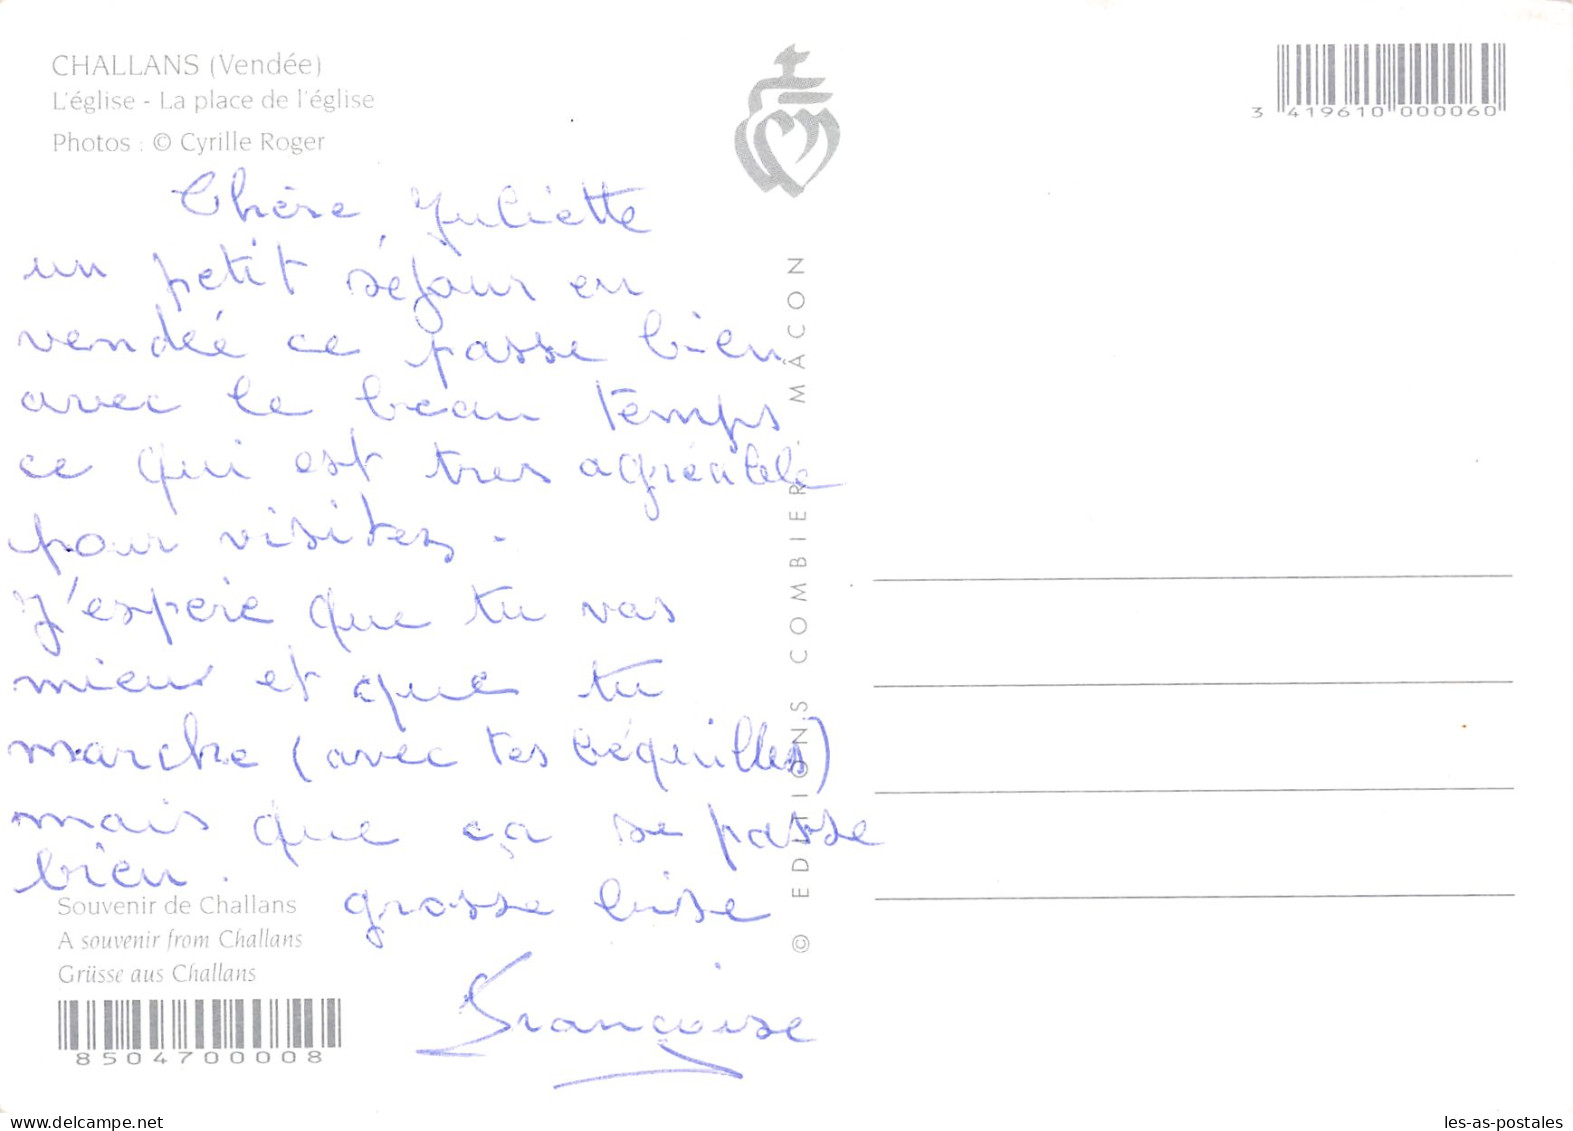 CHALLANS (Vendée)
L'église - La place de l'église
Photos : © Cyrille Roger
3 419610 000060
Chère Juliette
un petit séjour en
vendée ce passe bien
avec le beau temps
ce qui est tres agréable
pour visites.
J'espère que tu vas
mieux et que tu
marche (avec tes béquilles)
mais que ça se passe
bien.
grosse bise
Françoise
Souvenir de Challans
A souvenir from Challans
Grüsse aus Challans
8504700008
© EDITIONS COMBIER - MÂCON
delcampe.net
les-as-postales